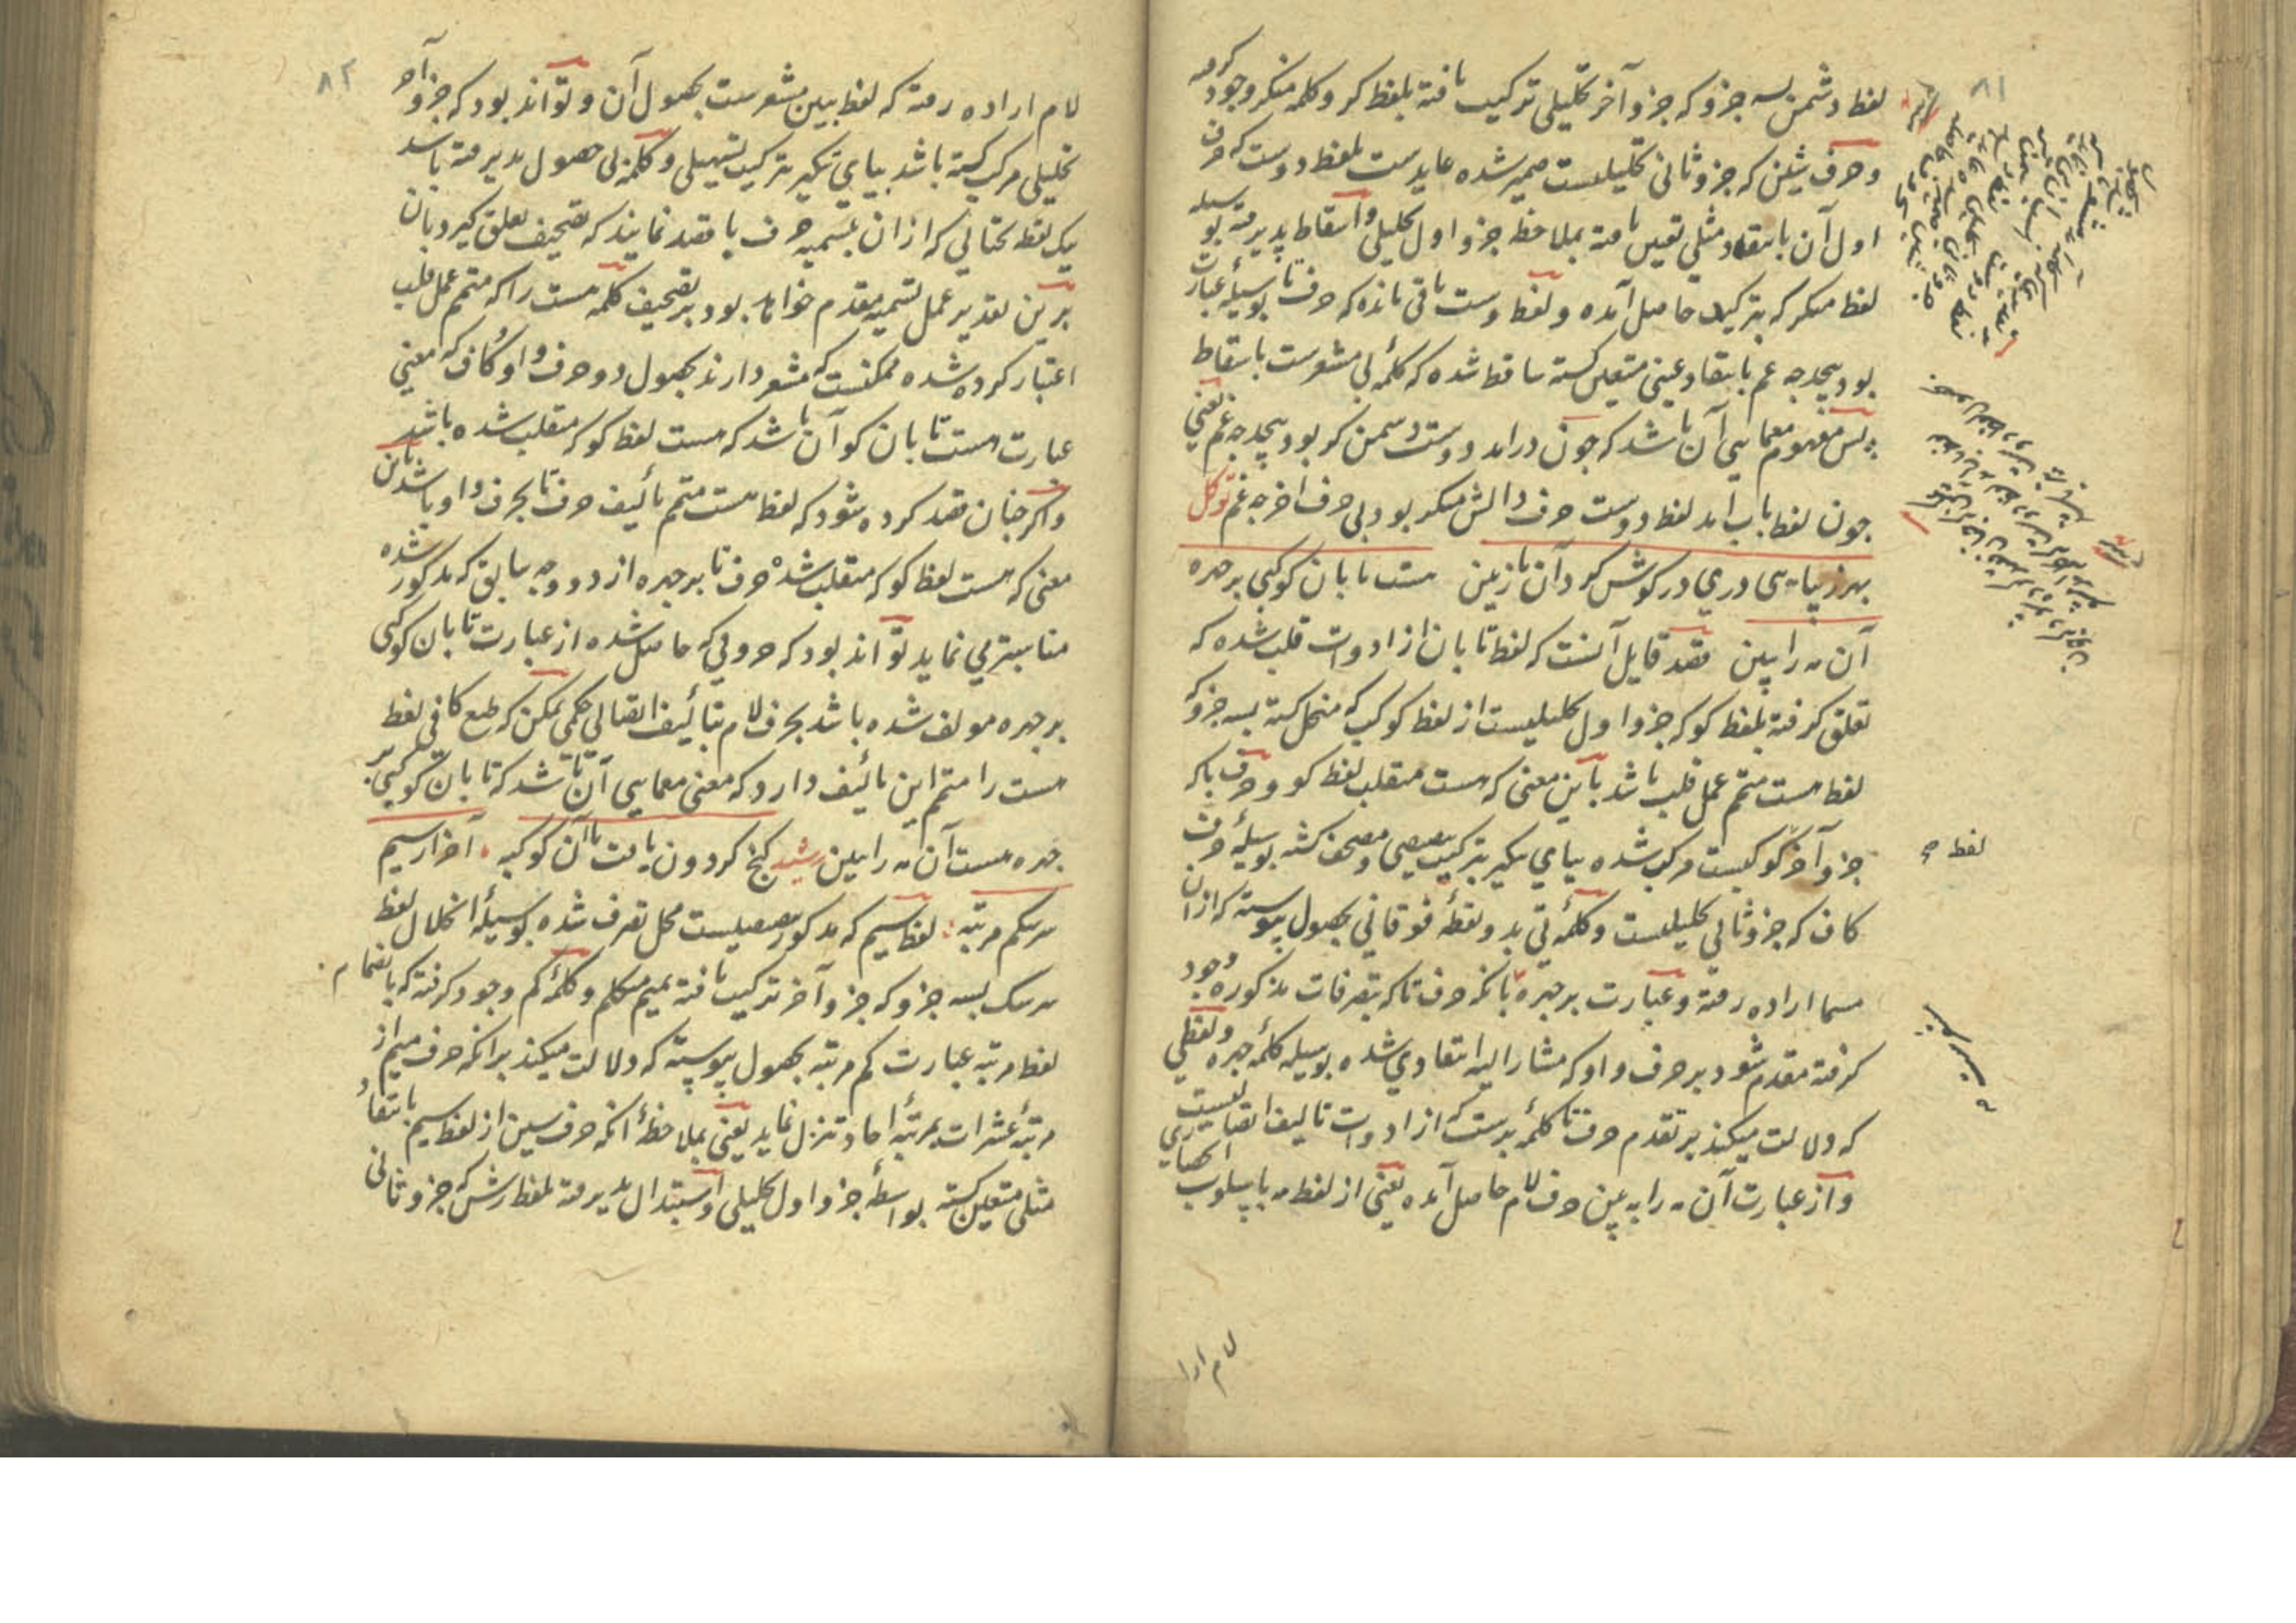 ۸۱
لفظ دشمن بسه جزو که جزو آخر تحلیلی ترکیب یافته بلفظ کر و کلمه منکر وجود گرفته
و حرف شین که جزو ثانی تحلیلیست ضمیر شده عایدست بلفظ دوست که حرف
اول آن بانتقاد مثلی تعیین یافته بملاحظه جزو اول تحلیلی و اسقاط پذیرفته بوسیله
لفظ منکر که بترکیب حاصل آمده و لفظ وست باقی مانده که حرف تا بوسیلهٔ عبارت
بود بیحد جه غم بانتقاد عینی متعین کشته ساقط شده که کلمهٔ بی مشعرست باسقاط
پس مفهوم معمایی آن باشد که جون درامد دوست دشمن کو بود بیحد جه غم یعنی
جون لفظ باب امد لفظ دوست حرف دالش منکر بود بی حرف اخر جه غم توکل
بهر زیبایی دری در کوش کرد آن نازنین مست تابان کوکبی بر جهره
آن مه را ببین قصد قایل آنست که لفظ تابان از ادوات قلب شده که
تعلق کرفته بلفظ کو که جزو اول تحلیلیست از لفظ کوکب که منحل کشته بسه جزو که
لفظ مست متمم عمل قلب باشد باین معنی که مست منقلب لفظ کو و حرف با که
جزو آخر کوکبست مرکب شده بیای تنکیر بترکیب تنصیصی و مصحف کشته بوسیلهٔ حرف
کاف که جزو ثانی تحلیلیست و کلمهٔ تی بدو نقطهٔ فوقانی بحصول پیوسته که ازان
مسما اراده رفته و عبارت بر جهره بانکه حرف تا که بتصرفات مذکوره وجود
کرفته مقدم شود بر حرف واو که مشار الیه انتقادی شده بوسیله کلمهٔ جهره و لفظی
که دلالت میکند بر تقدم حرف تا کلمهٔ برست که از ادوات تالیف اتصالیست
و از عبارت آن مه را ببین حرف لام حاصل آمده یعنی از لفظ مه باسلوب انحصاری
لفظ مه
لام ارا
۸۲
لام اراده رفته که لفظ ببین مشعرست بحصول آن و تواند بود که جزو آخر
تحلیلی مرکب کشته باشد بیای تنکیر بترکیب تسهیلی و کلمه بی حصول پذیرفته باشد
یک نقطه تحتانی که ازان بتسمیه حرف با قصد نمایند که تصحیف تعلق کیرد بان
برین تقدیر عمل تسمیه مقدم خواهد بود بر تصحیف کلمه مست را که متمم عمل قلب
اعتبار کرده شده ممکنست که مشعر دارند بحصول دو حرف واو و کاف که معنی
عبارت مست تابان کو آن باشد که مست لفظ کو که منقلب شده باشد
واکر جنان قصد کرده شود که لفظ مست متمم تألیف حرف تا بحرف واو باشد باین
معنی که مست لفظ کو که منقلب شده حرف تا بر جهره از دو وجه سابق که مذکور شده
مناسبتر می نماید تواند بود که حروفی که حاصل شده از عبارت تابان کوکبی
بر جهره مولف شده باشد بحرف لام بتألیف اتصالی حکمی ممکن که طبع کافی لفظ
مست را متمم این تألیف دارد که معنی معمایی آن باشد که تابان کوکبی بر
جهره مست آن مه را ببین رشید کنج کردون یافت تا آن کوکبه آخرار سیم
سر سکم مرتبه لفظ سیم که مذکور تنصیصیست محل تصرف شده بوسیلهٔ انحلال لفظ
سر سک بسه جزو که جزو آخر ترکیب یافته بمیم متکلم و کلمهٔ کم وجود کرفته که بانضمام
لفظ مرتبه عبارت کم مرتبه بحصول پیوسته که دلالت میکند برانکه حرف میم از
مرتبهٔ عشرات بمرتبهٔ احاد تنزل نماید یعنی بملاحظهٔ انکه حرف سین از لفظ سیم بانتقاد
مثلی متعین کشته بواسطهٔ جزو اول تحلیلی و استبدال پذیرفته بلفظ رش که جزو ثانی